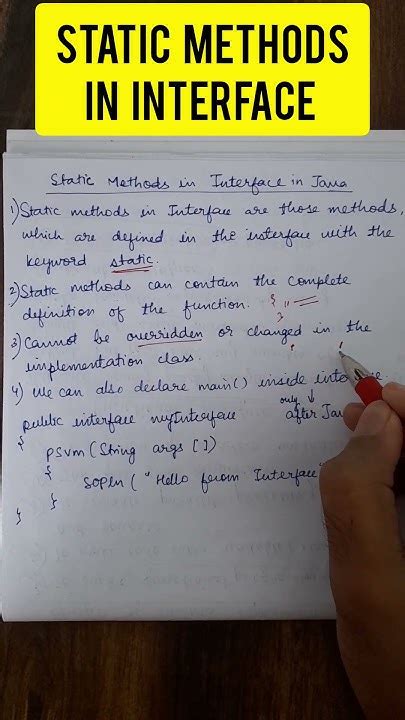 STATIC METHODS
IN INTERFACE
Static Methods in Interface in Java
1) Static methods in Interface are those methods,
which are defined in the interface with the
keyword static.
2) Static methods can contain the complete
definition of the function. { " }
3) Cannot be overridden or changed in the
implementation class.
4) We can also declare main() inside
only ↓
public interface myInterface after
{
psvm (String args [])
{
SOPln ( "Hello from Interface"
}
}